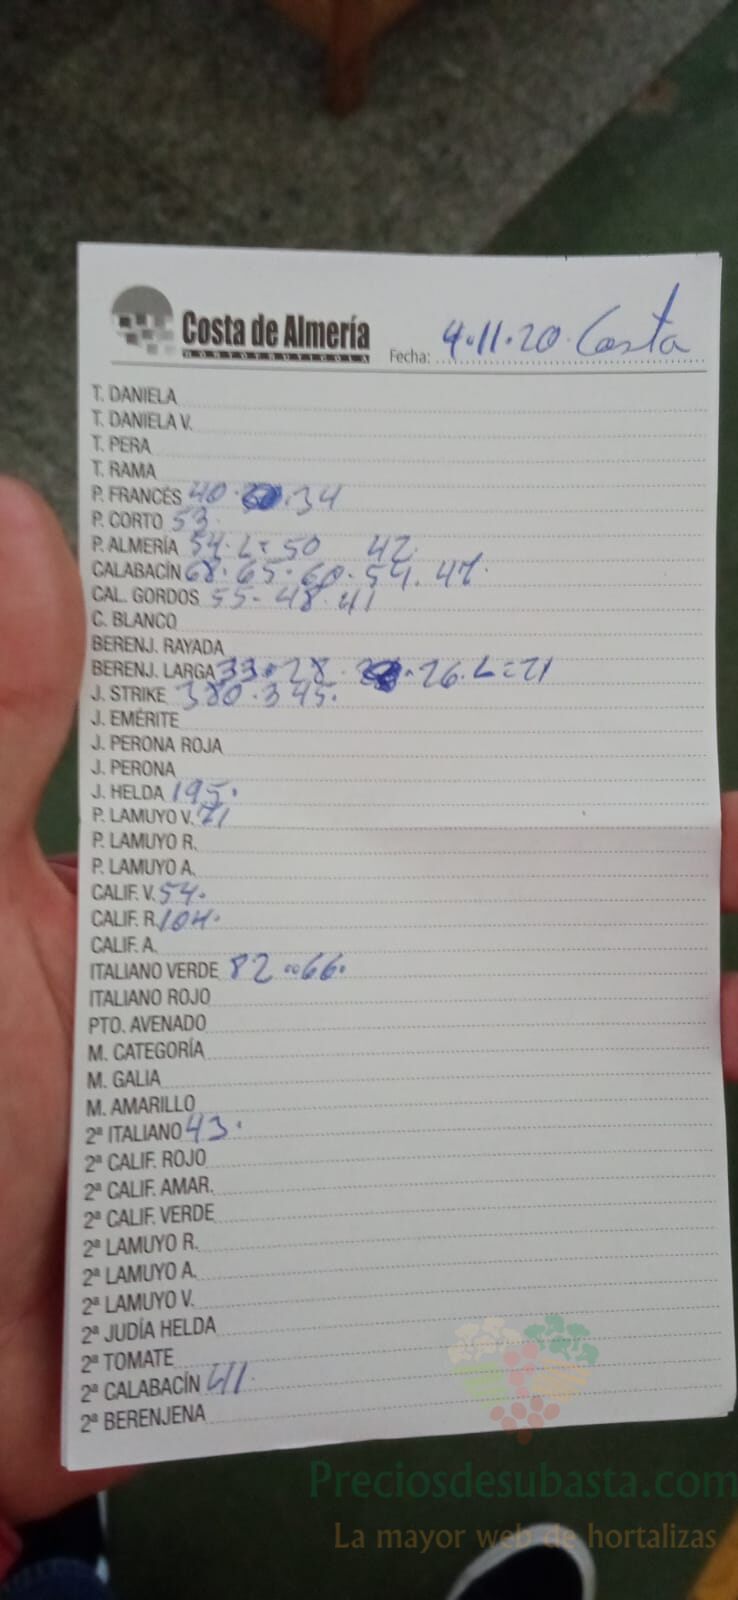 Costa de Almería
HORTOFRUTICOLA
Fecha: 4.11.20. Costa
T. DANIELA
T. DANIELA V.
T. PERA
T. RAMA
P. FRANCÉS 40. .34
P. CORTO 53.
P. ALMERÍA 54. L= 50 42.
CALABACÍN 68. 65. 60. 54. 47.
CAL. GORDOS 55- 48. 41
C. BLANCO
BERENJ. RAYADA
BERENJ. LARGA 33. 28. .26. L=21
J. STRIKE 380. 345.
J. EMÉRITE
J. PERONA ROJA
J. PERONA
J. HELDA 195.
P. LAMUYO V. 71
P. LAMUYO R.
P. LAMUYO A.
CALIF. V. 54.
CALIF. R. 104.
CALIF. A.
ITALIANO VERDE 82 .. 66.
ITALIANO ROJO
PTO. AVENADO
M. CATEGORÍA
M. GALIA
M. AMARILLO
2ª ITALIANO 43.
2ª CALIF. ROJO
2ª CALIF. AMAR.
2ª CALIF. VERDE
2ª LAMUYO R.
2ª LAMUYO A.
2ª LAMUYO V.
2ª JUDÍA HELDA
2ª TOMATE
2ª CALABACÍN 41.
2ª BERENJENA
Preciosdesubasta.com
La mayor web de hortalizas